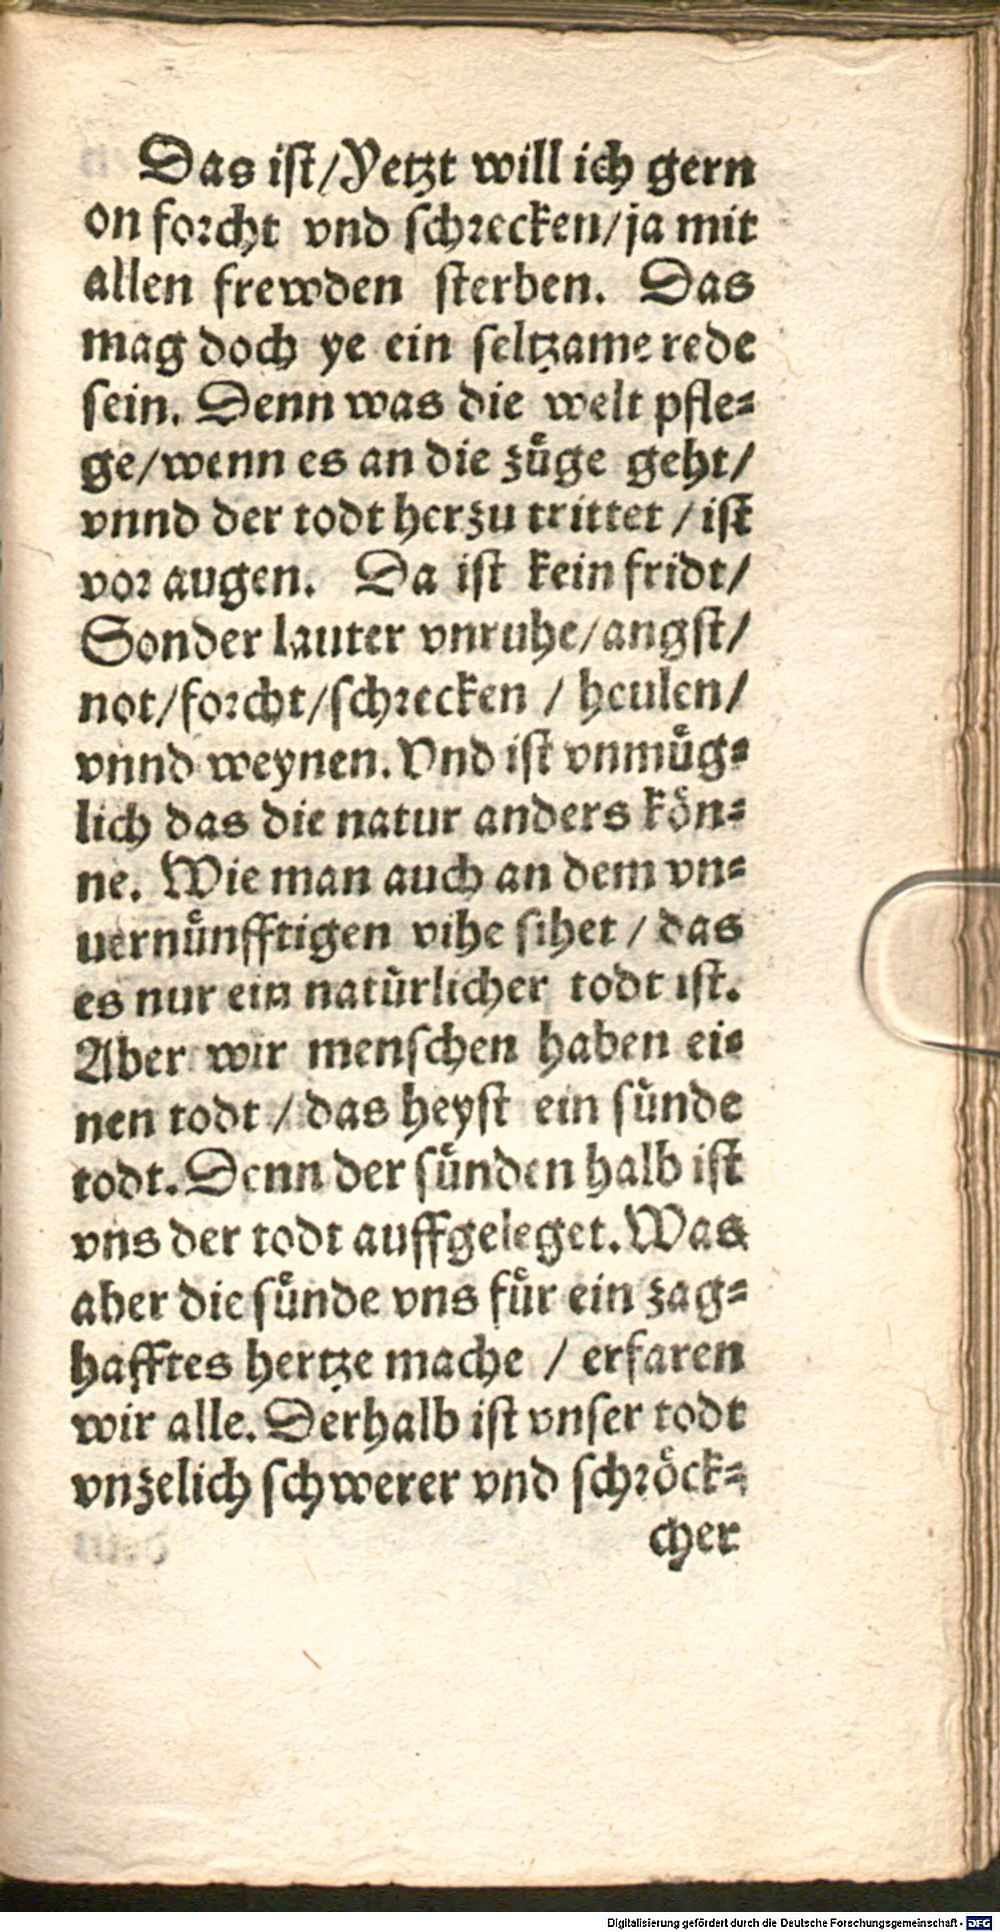 Das iſt/Yetzt will ich gern
on forcht vnd ſchrecken/ja mit
allen frewden ſterben. Das
mag doch ye ein ſeltzame rede
ſein. Denn was die welt pfle⸗
ge/wenn es an die zuͤge geht/
vnnd der todt herzu trittet / iſt
vor augen. Da iſt kein fridt/
Sonder lauter vnruhe/angſt/
not/forcht/ſchrecken / heulen/
vnnd weynen. Vnd iſt vnmuͤg⸗
lich das die natur anders koͤn⸗
ne. Wie man auch an dem vn⸗
uernuͤnfftigen vihe ſihet / das
es nur ein natuͤrlicher todt iſt.
Aber wir menſchen haben ei⸗
nen todt / das heyſt ein ſuͤnde
todt. Denn der ſuͤnden halb iſt
vns der todt auffgeleget. Was
aber die ſuͤnde vns fuͤr ein zag⸗
hafftes hertze mache / erfaren
wir alle. Derhalb iſt vnſer todt
vnzelich ſchwerer vnd ſchroͤck⸗
cher
Digitalisierung gefördert durch die Deutsche Forschungsgemeinschaft - DFG